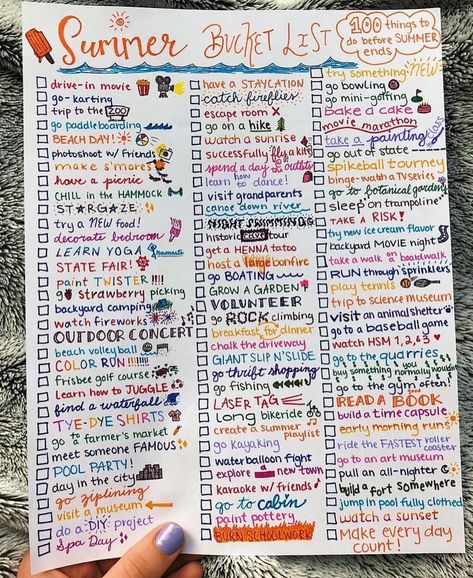 Summer BUCKET LIST
100 things to
do before SUMMER
ends
drive-in movie
go-karting
trip to the ZOO
go paddleboarding
BEACH DAY!
photoshoot w/ friends
make s'mores
have a picnic
CHILL in the HAMMOCK
STARGAZE
try a NEW food!
decorate bedroom
LEARN YOGA
STATE FAIR!
paint TWISTER!!!!
strawberry picking
backyard camping
watch fireworks
OUTDOOR CONCERT
beach volleyball
COLOR RUN!!!!
frisbee golf course
Learn how to JUGGLE
find a waterfall
TYE-DYE SHIRTS
go to farmer's market
meet someone FAMOUS
POOL PARTY!
day in the city
go ziplining
visit a museum
do a DIY project
Spa Day
have a STAYCATION
catch fireflies
escape room
go on a hike
watch a sunrise
successfully fly a kite
spend a day outside
learn to dance!
visit grandparents
canoe down river
NIGHT SWIMMING
historic tour
get a HENNA tatoo
host a large bonfire
go BOATING
GROW A GARDEN
VOLUNTEER
go ROCK climbing
breakfast for dinner
chalk the driveway
GIANT SLIP N' SLIDE
go thrift shopping
go fishing
LASER TAG
Long bikeride
create a summer
playlist
go kayaking
waterballoon fight
explore a new town
karaoke w/ friends
go to cabin
paint pottery
BURN SCHOOLWORK
try something NEW
go bowling
go mini-golfing
bake a cake
movie marathon
take a painting class
go out of state
spikeball tourney
binge-watch a TV series
go to botanical gardens
sleep on trampoline
TAKE A RISK!
try new ice cream flavor
backyard MOVIE night
take a walk on boardwalk
RUN through sprinklers
play tennis
trip to science museum
visit an animal shelter
go to a baseball game
watch HSM 1, 2, & 3
go to the quarries
buy something you normally wouldn't
go to the gym often!
READ A BOOK
build a time capsule
early morning runs
ride the FASTEST roller
coaster
go to an art museum
pull an all-nighter
build a fort Somewhere
jump in pool fully clothed
watch a sunset
Make every day
count!